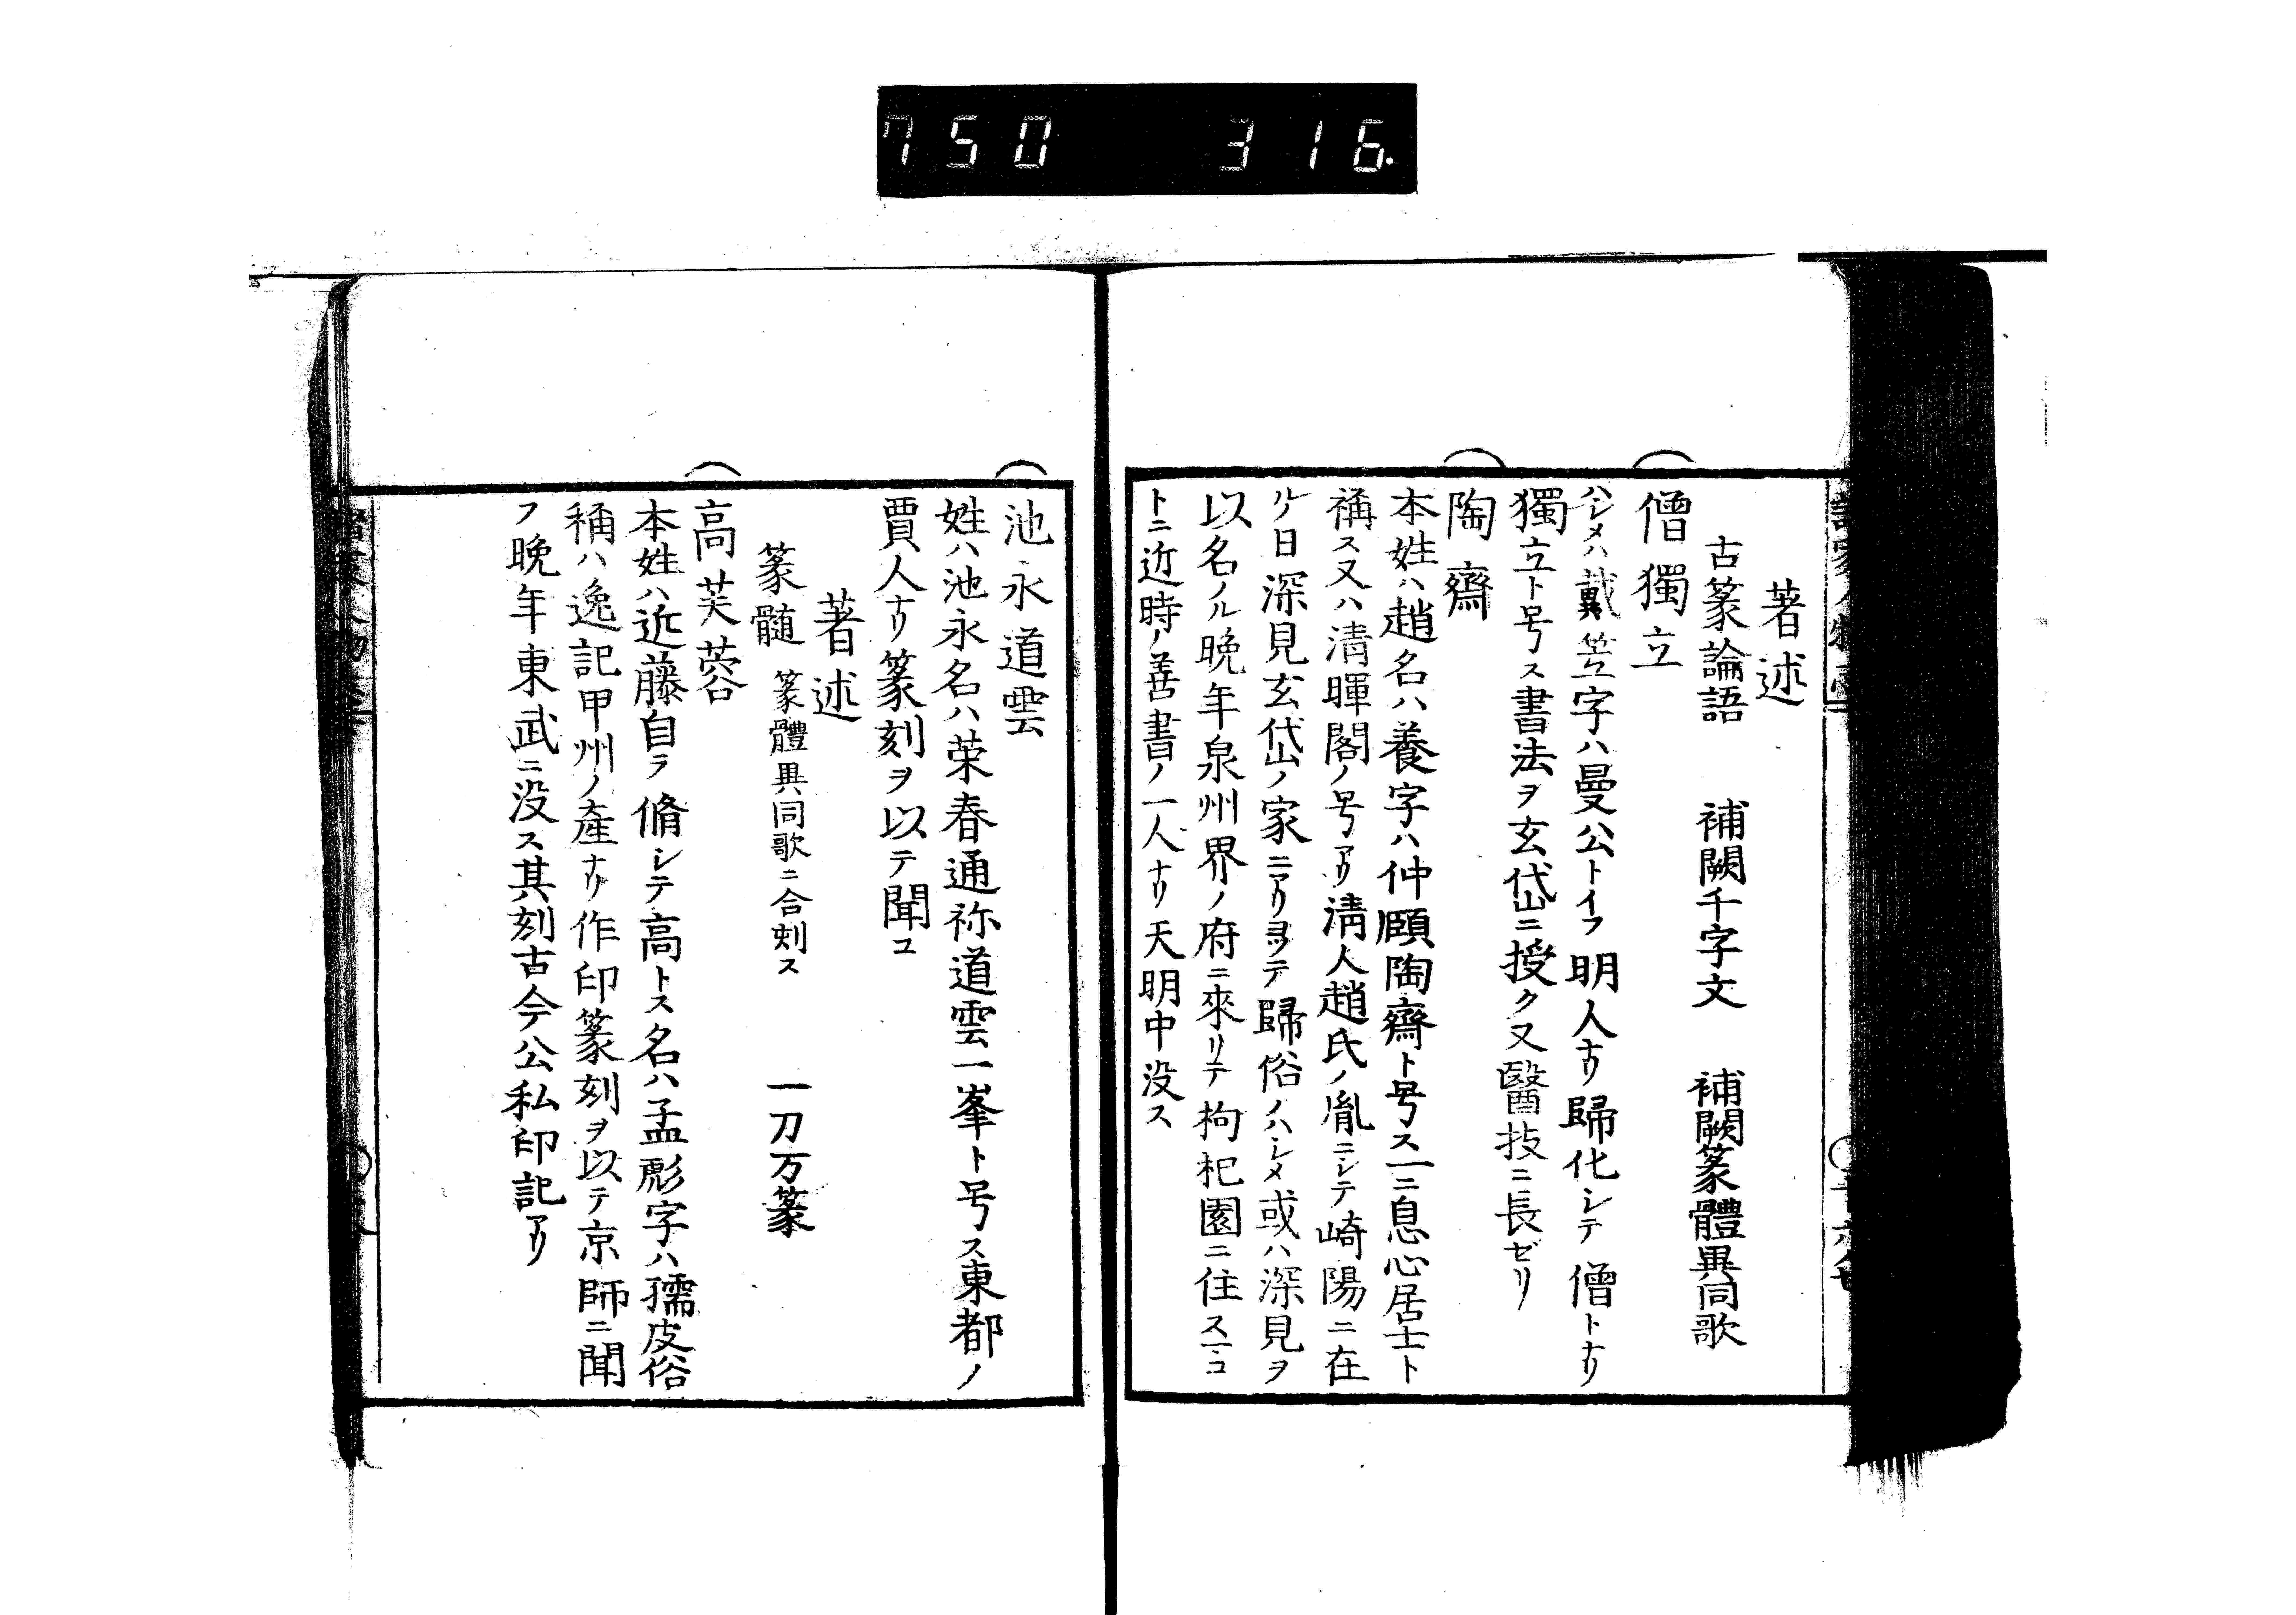 750 316.
著述
古篆論語 補闕千字文 補闕篆體異同歌
僧獨立
ハシメハ戴笠字ハ曼公トイフ明人ナリ歸化シテ僧トナリ
獨立ト号ス書法ヲ玄岱ニ授ク又醫技ニ長ゼリ
陶齋
本姓ハ趙名ハ養字ハ仲頤陶齋ト号ス一ニ息心居士ト
稱ス又ハ清暉閣ノ号アリ清人趙氏ノ胤ニシテ崎陽ニ在
ルノ日深見玄岱ノ家ニアリヨツテ歸俗ノハシメ或ハ深見ヲ
以名ノル晩年泉州界ノ府ニ來リテ枸杞園ニ住ス一コ
トニ近時ノ善書ノ一人ナリ天明中没ス
池永道雲
姓ハ池永名ハ荣春通祢道雲一峯ト号ス東都ノ
賈人ナリ篆刻ヲ以テ聞コ
著述
篆髄 篆體異同歌ニ合刻ス 一刀万篆
高芙蓉
本姓ハ近藤自ラ脩シテ高トス名ハ孟彪字ハ孺皮俗
稱ハ逸記甲州ノ產ナリ作印篆刻ヲ以テ京師ニ聞
フ晩年東武ニ没ス其刻古今公私印記アリ